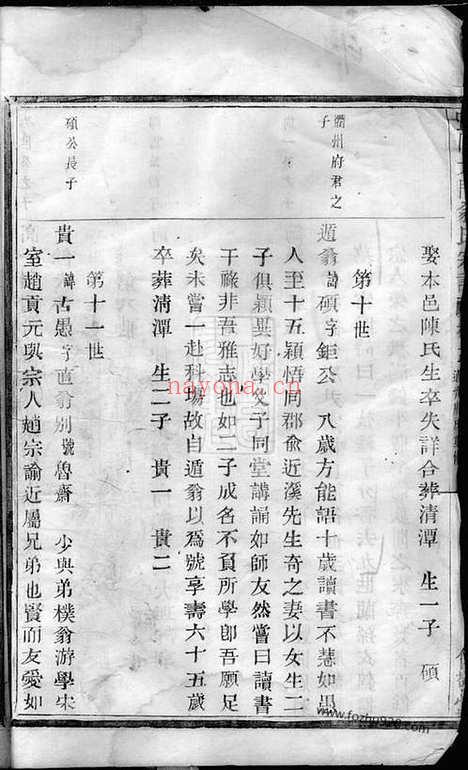 娶本邑陳氏生卒失詳合葬清潭　生一子　碩
第十世
衢州府君之子
遁翁諱碩字鉅公　八歲方能語十歲讀書不慧如愚
人至十五穎悟同郡俞近溪先生奇之妻以女生二
子俱穎異好學父子同堂講誦如師友然嘗曰讀書
干祿非吾雅志也如二子成名不負所學卽吾願足
矣未嘗一赴科場故自遁翁以爲號享壽六十五歲
卒葬淸潭　生二子　貴一　貴二
第十一世
碩公長子
貴一諱古愚字直翁別號魯齋　少與弟樸翁游學宋
室趙頁元與宗人趙宗諭近屬兄弟也賢而友愛如
nayona.cn
www.fozhu920.com